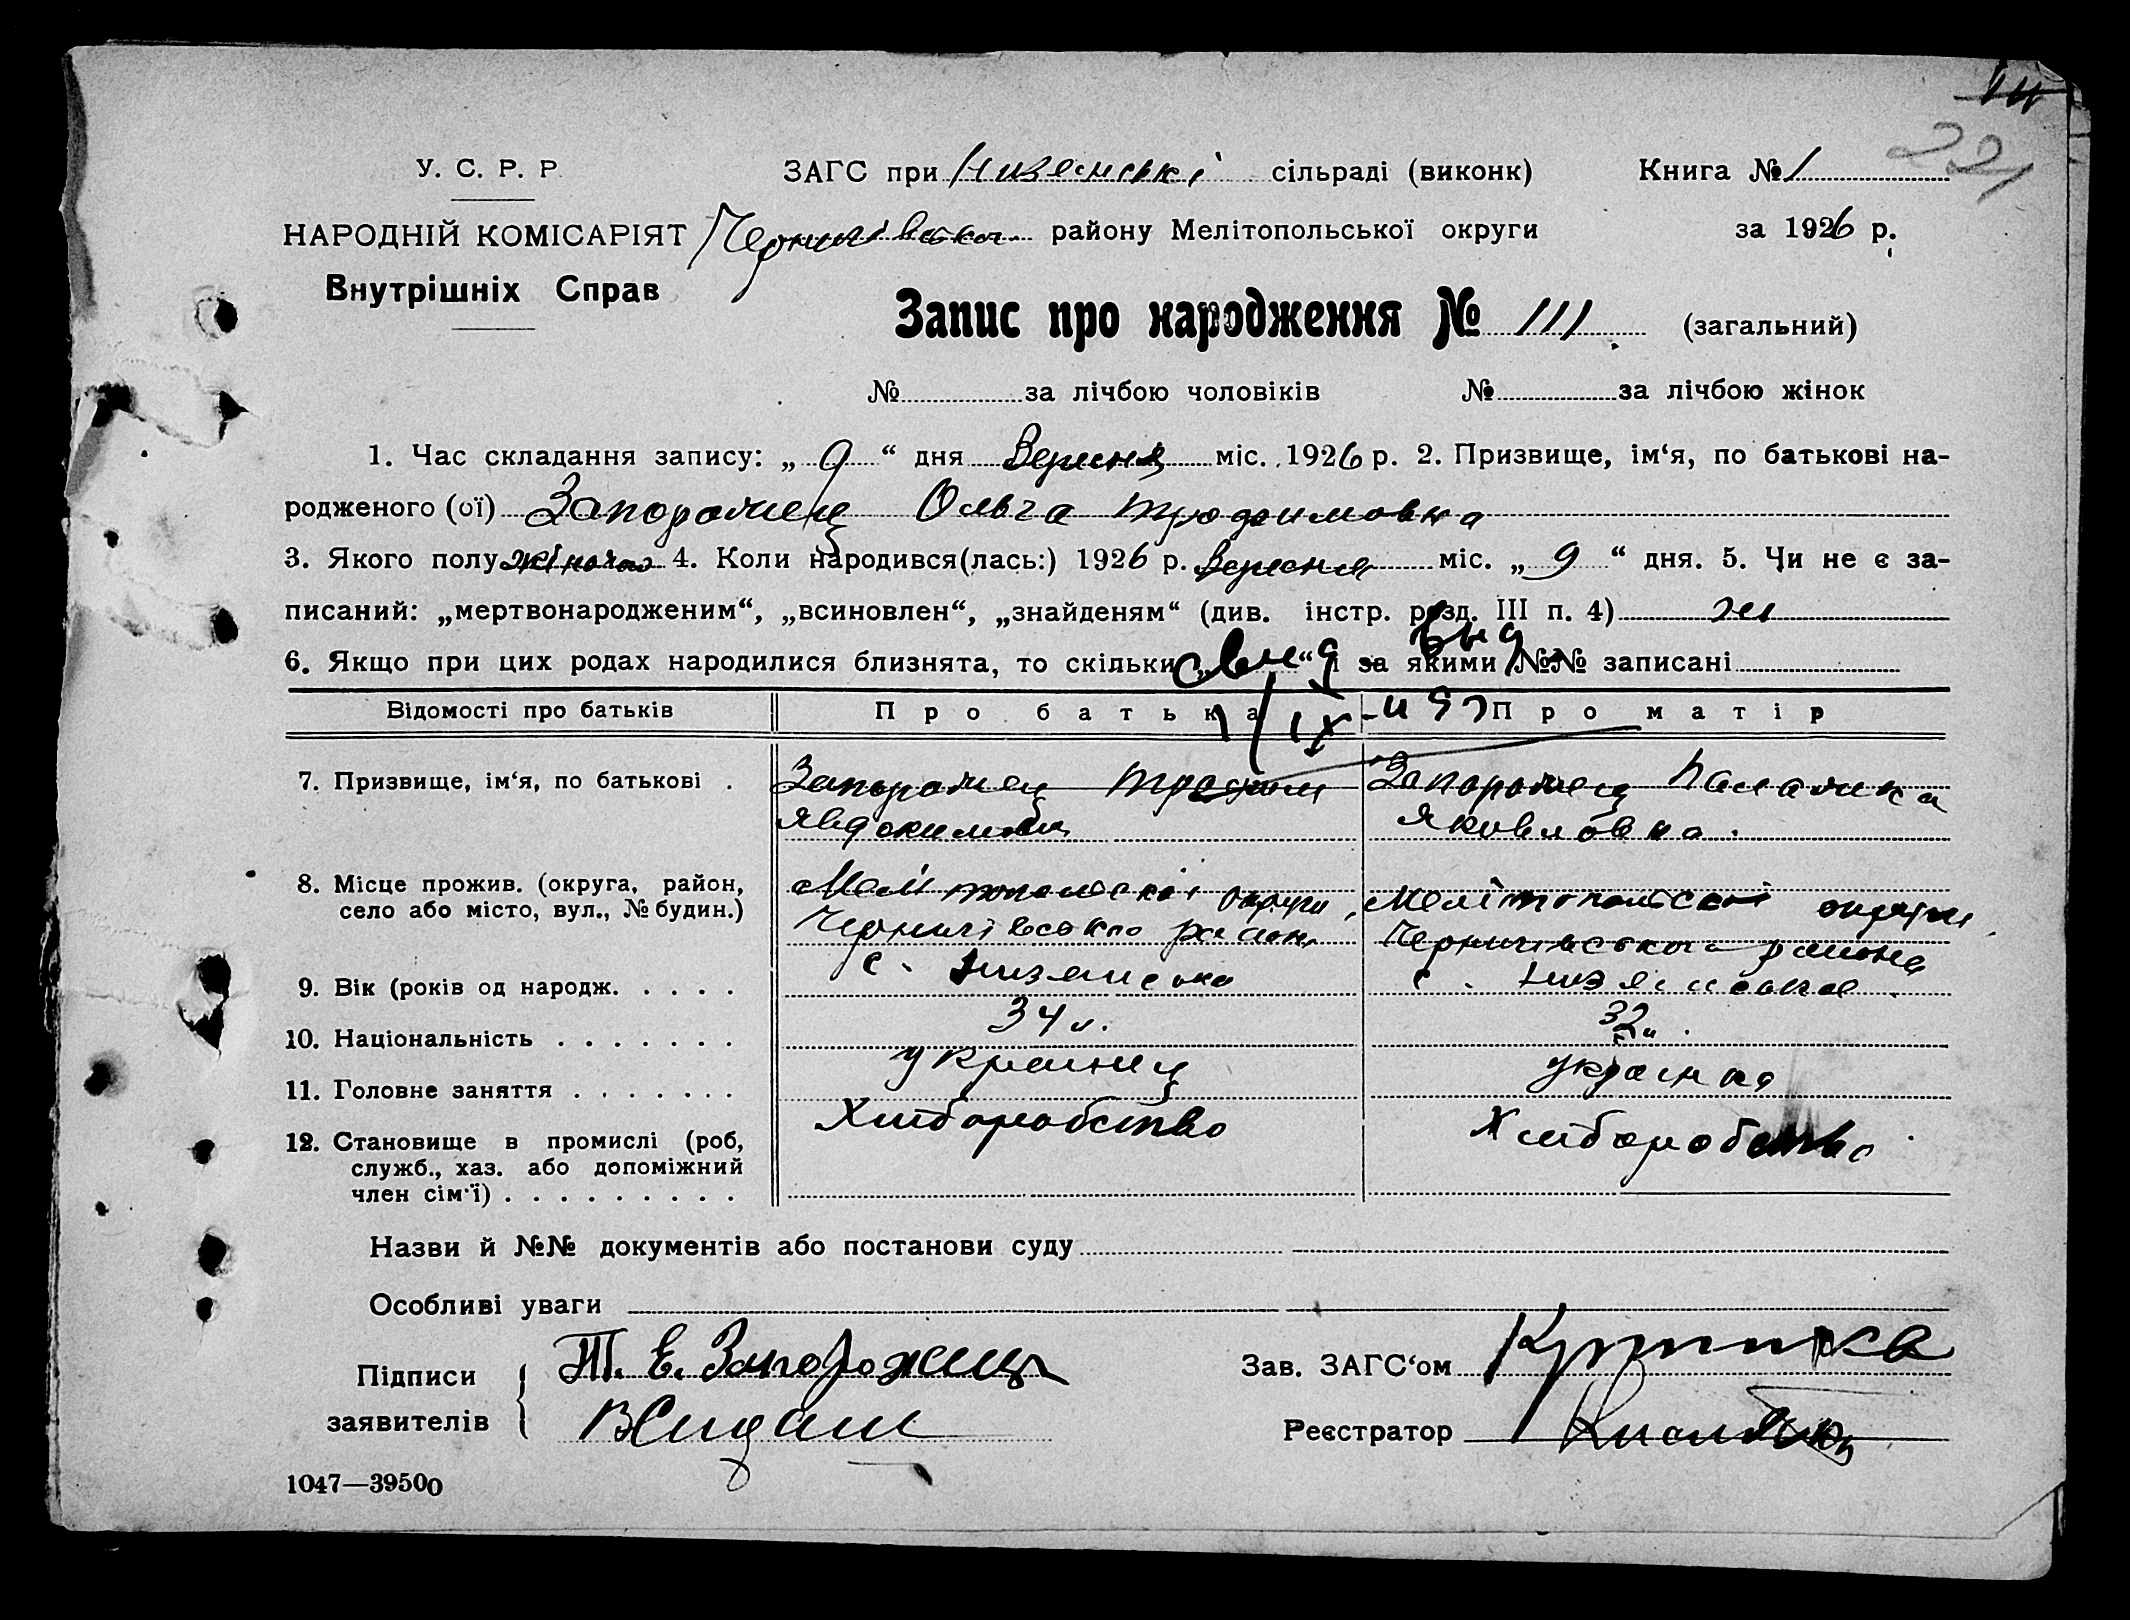 14
221
У. С. Р. Р.
ЗАГС при Низянські сільраді (виконк)
Книга № 1
НАРОДНІЙ КОМІСАРІЯТ
Чернигівсько району Мелітопольської округи
за 1926 р.
Внутрішніх Справ
Запис про народження № 111. (загальний)
№ за лічбою чоловіків № за лічбою жінок
1. Час складання запису: „ 9 “ дня Вересня міс. 1926 р. 2. Призвище, ім‘я, по батькові на-
родженого (ої) Запорожец Ольга Трохимовна
3. Якого полу жіночао 4. Коли народився(лась:) 1926 р. Вересня міс. „ 9 “ дня. 5. Чи не є за-
писаний: „мертвонародженим“, „всиновлен“, „знайденям“ (див. інстр. розд. III п. 4) ні
6. Якщо при цих родах народилися близнята, то скільки „ “ і за якими №№ записані
Відомості про батьків
Про батька
Про матір
7. Призвище, ім‘я, по батькові .
Запорожец Трохим
Явдокимович
Запорожец Палажка
Яковловна.
8. Місце прожив. (округа, район,
село або місто, вул., № будин.)
Мелітопольскоі округи,
Чернигівсько район
с. Низянсько
Мелітопольскоі округи
Чернигівсько района
с. Низянсько
9. Вік (років од народж. . . . .
34 л.
32 л.
10. Національність . . . . . . .
украинец
украінка
11. Головне заняття . . . . . . .
Хліборобство
Хліборобство
12. Становище в промислі (роб,
служб., хаз. або допоміжний
член сім‘ї) . . . . . . . . .
Назви й №№ документів або постанови суду
Особливі уваги
Підписи
заявителів
Т. Е. Запорожець
Зав. ЗАГС‘ом
Реєстратор
1047—39500